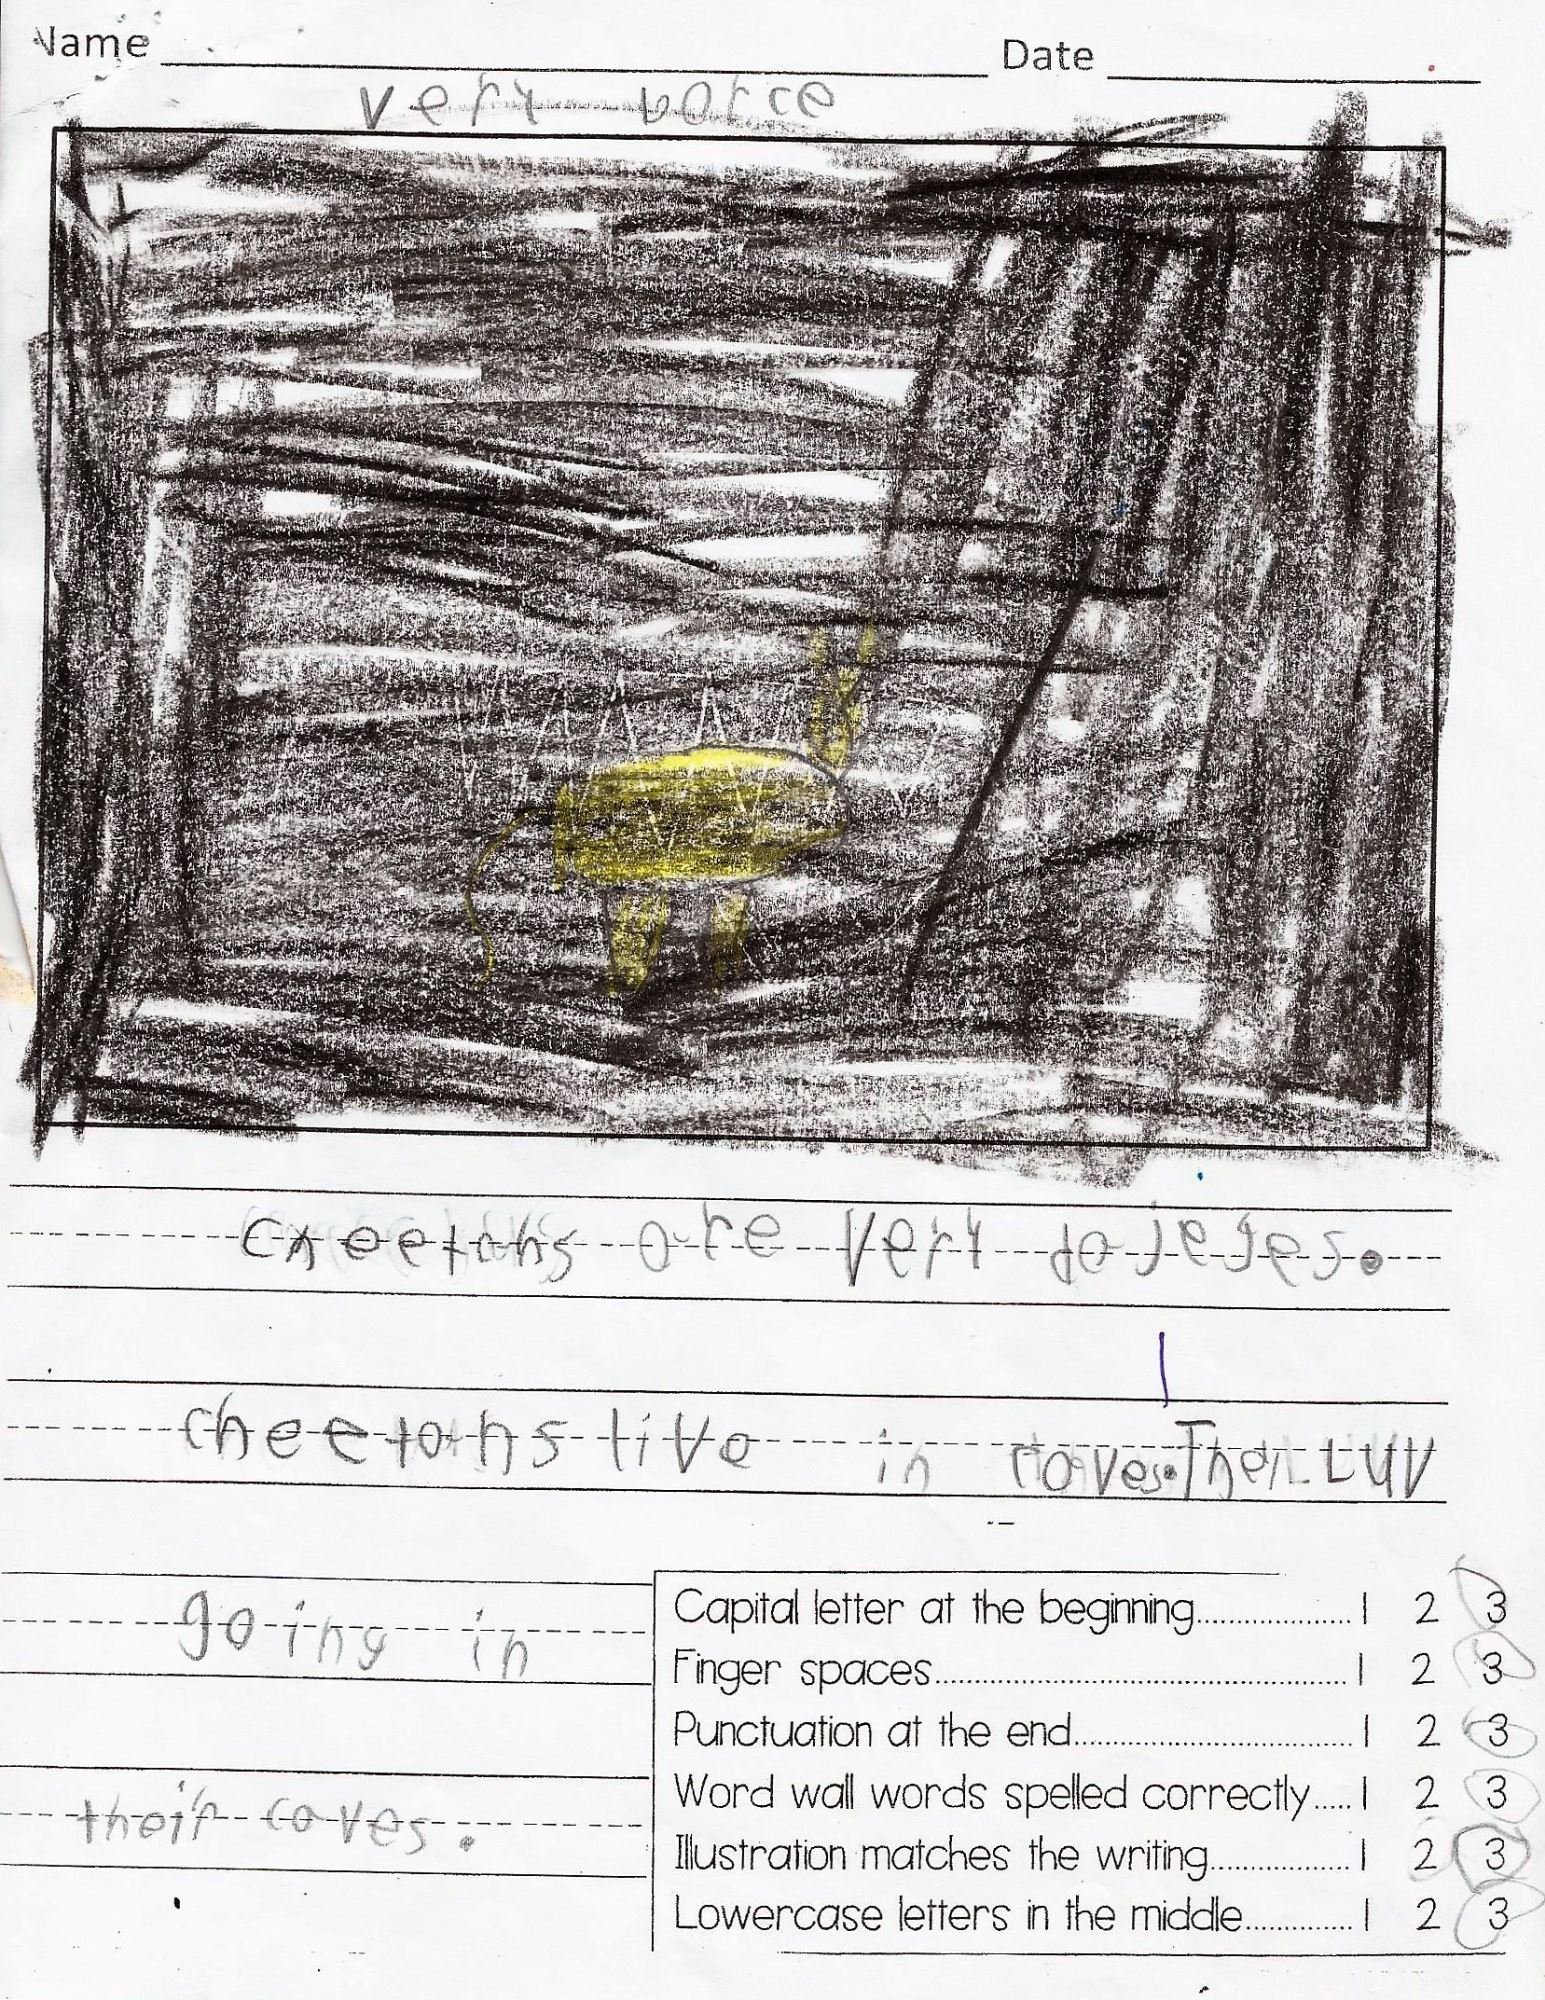 Name Date
very
cheetahs are very dajeges.
cheetahs live in caves. They LUV
going in
their caves.
Capital letter at the beginning 1 2 3
Finger spaces 1 2 3
Punctuation at the end 1 2 3
Word wall words spelled correctly 1 2 3
Illustration matches the writing 1 2 3
Lowercase letters in the middle 1 2 3